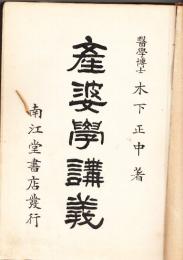 醫學博士 木下正中 著
產婆學講義
南江堂書店發行